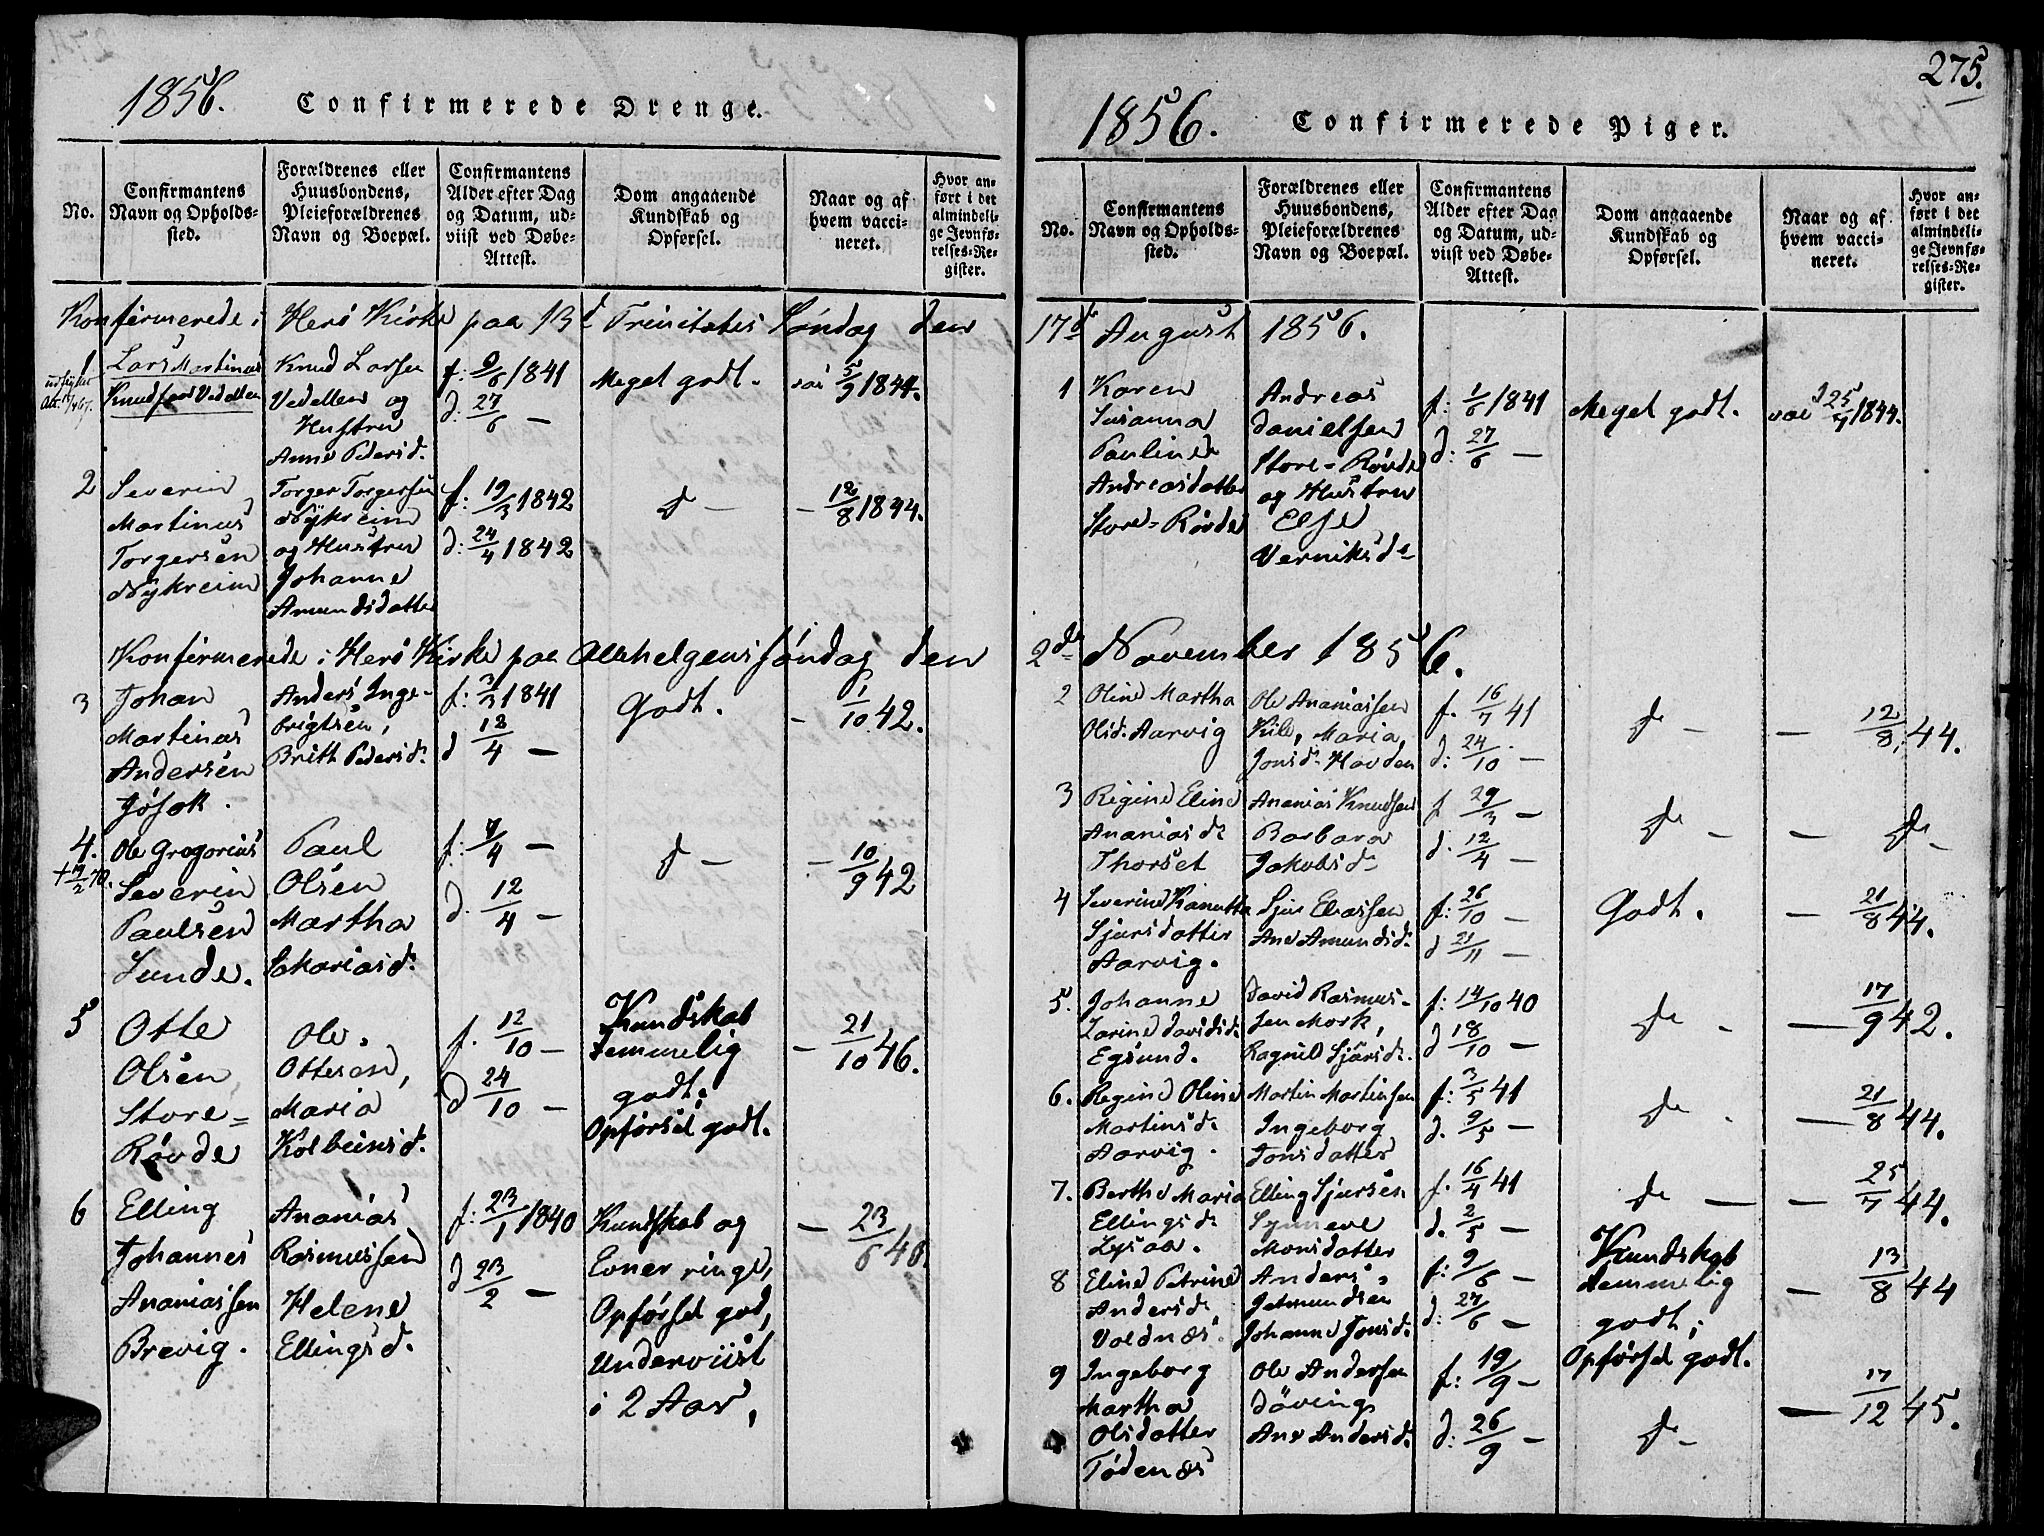 1856. Confirmerede Drenge.
No.
Confirmantens
Navn og Opholds-
sted.
Forældrenes eller
Huusbondens,
Pleieforældrenes
Navn og Boepæl.
Confirmantens
Alder efter Dag
og Datum, ud-
viist ved Døbe-
Attest.
Dom angaaende
Kundskab og
Opførsel.
Naar og af
hvem vacci-
neret.
Hvor an-
ført i det
almindeli-
ge Jevnfø-
relses-Re-
gister.
Konfirmerede i Herö Kirke paa 13d Trinitatis Søndag den
1
Lars Martinus
Knudsen Vedellen
Knud Larsen
Vedellen og
Hustru
Anne Pedersd.
f: 9/6 1841
d: 27/6 —
Meget godt.
5/9 1844.
2
Severin
Martinus
Torgersen
Nykreim
Torger Torgersen
Nykreim
og Hustru
Johanne
Amundsdatter
f: 19/3 1842
d: 24/4 1842
d —
— 12/8 1844.
Konfirmerede i Herö Kirke paa Allehelgens søndag den
3
Johan
Martinus
Andersen
Jösok.
Anders Inge-
brigtsen,
Britt Pedersd.
f: 3/3 1841
d 12/4 —
Godt.
— 1/10 42.
4.
+ 19/2 70.
Ole Gregorius
Severin
Paulsen
Sunde.
Paul
Olsen
Martha
Sakariasd.
f: 7/4 —
d. 12/4 —
d —
— 10/9 42
5
Otte
Olsen
Store-
Røvde
Ole
Ottesen,
Maria
Kolbeinsd.
f. 12/10 —
d 24/10 —
Kundskab
temmelig
godt;
Opførsel godt.
— 21/10 46.
6
Elling
Johannes
Ananiassen
Brevig.
Ananias
Rasmussen
Helene
Ellingsd.
f: 23/1 1840
d 23/2 —
Kundskab og
Evner ringe,
Opførsel god,
Underviist
i 2 Aar,
— 23/6 46
275.
1856. Confirmerede Piger.
No.
Confirmantens
Navn og Opholds-
sted.
Forældrenes eller
Huusbondens,
Pleieforældrenes
Navn og Boepæl.
Confirmantens
Alder efter Dag
og Datum, ud-
viist ved Døbe-
Attest.
Dom angaaende
Kundskab og
Opførsel.
Naar og af
hvem vacci-
neret.
Hvor an-
ført i det
almindeli-
ge Jevnfø-
relses-Re-
gister.
17d August 1856.
1
Karen
Susanna
Pauline
Andreasdatter
Store-Røvde
Andreas
Danielsen
Store-Røvde
og Hustru
Else
Verniksd.
f. 1/6 1841
d: 27/6 —
Meget godt.
vac 25/7 1844.
2de November 1856.
2
Oline Martha
Olsd. Aarvig
Ole Ananiassen
Kile, Maria
Jonsd. Havden
f. 16/7 41
d: 24/10 —
d —
— 12/8 44.
3
Regine Eline
Ananiasd.
Thorset
Ananias Knudsen
Barbara
Jakobsd.
f 29/3 —
d. 12/4 —
d —
— d —
4
Severine Kanutta
Sjursdatter
Aarvig.
Sjur Eliassen
Ane Amundsd.
f: 26/10 —
d 21/11 —
Godt.
— 21/8 44.
5.
Johanne
Larine Davidsd.
Egsund.
David Rasmus-
sen Mork,
Ragnild Sjursd.
f: 14/10 40
d 18/10 —
d —
— 17/9 42.
6.
Regine Oline
Martinsd.
Aarvig.
Martin Martinsen
Ingeborg
Jonsdatter
f: 3/5 41
d. 9/5 —
d —
— 21/8 44.
7.
Berthe Maria
Ellingsd.
Lysaa.
Elling Sjursen
Synneve
Monsdatter
f. 16/4 41
d. 2/5 —
d —
— 25/7 44.
8
Eline Petrine
Andersd.
Voldnæs.
Anders
Jetmundsen
Johanne Jonsd.
f: 9/6 —
d: 27/6 —
Kundskab
temmelig
godt;
Opførsel godt.
— 13/8 44
9
Ingeborg
Martha
Olsdatter
Tödenæs
Ole Andersen
Döving
Ane Andersd.
f: 19/9 —
d: 26/9 —
d —
— 17/12 45.